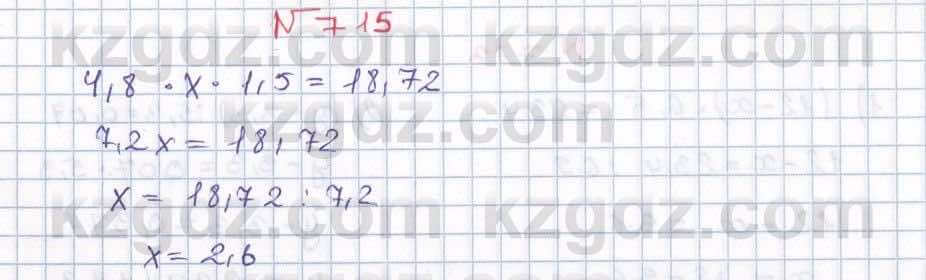 №715
4,8 · x · 1,5 = 18,72
7,2x = 18,72
x = 18,72 : 7,2
x = 2,6
kzgdz.com kzgdz.com
kzgdz.com kzgdz.com
kzgdz.com kzgdz.com